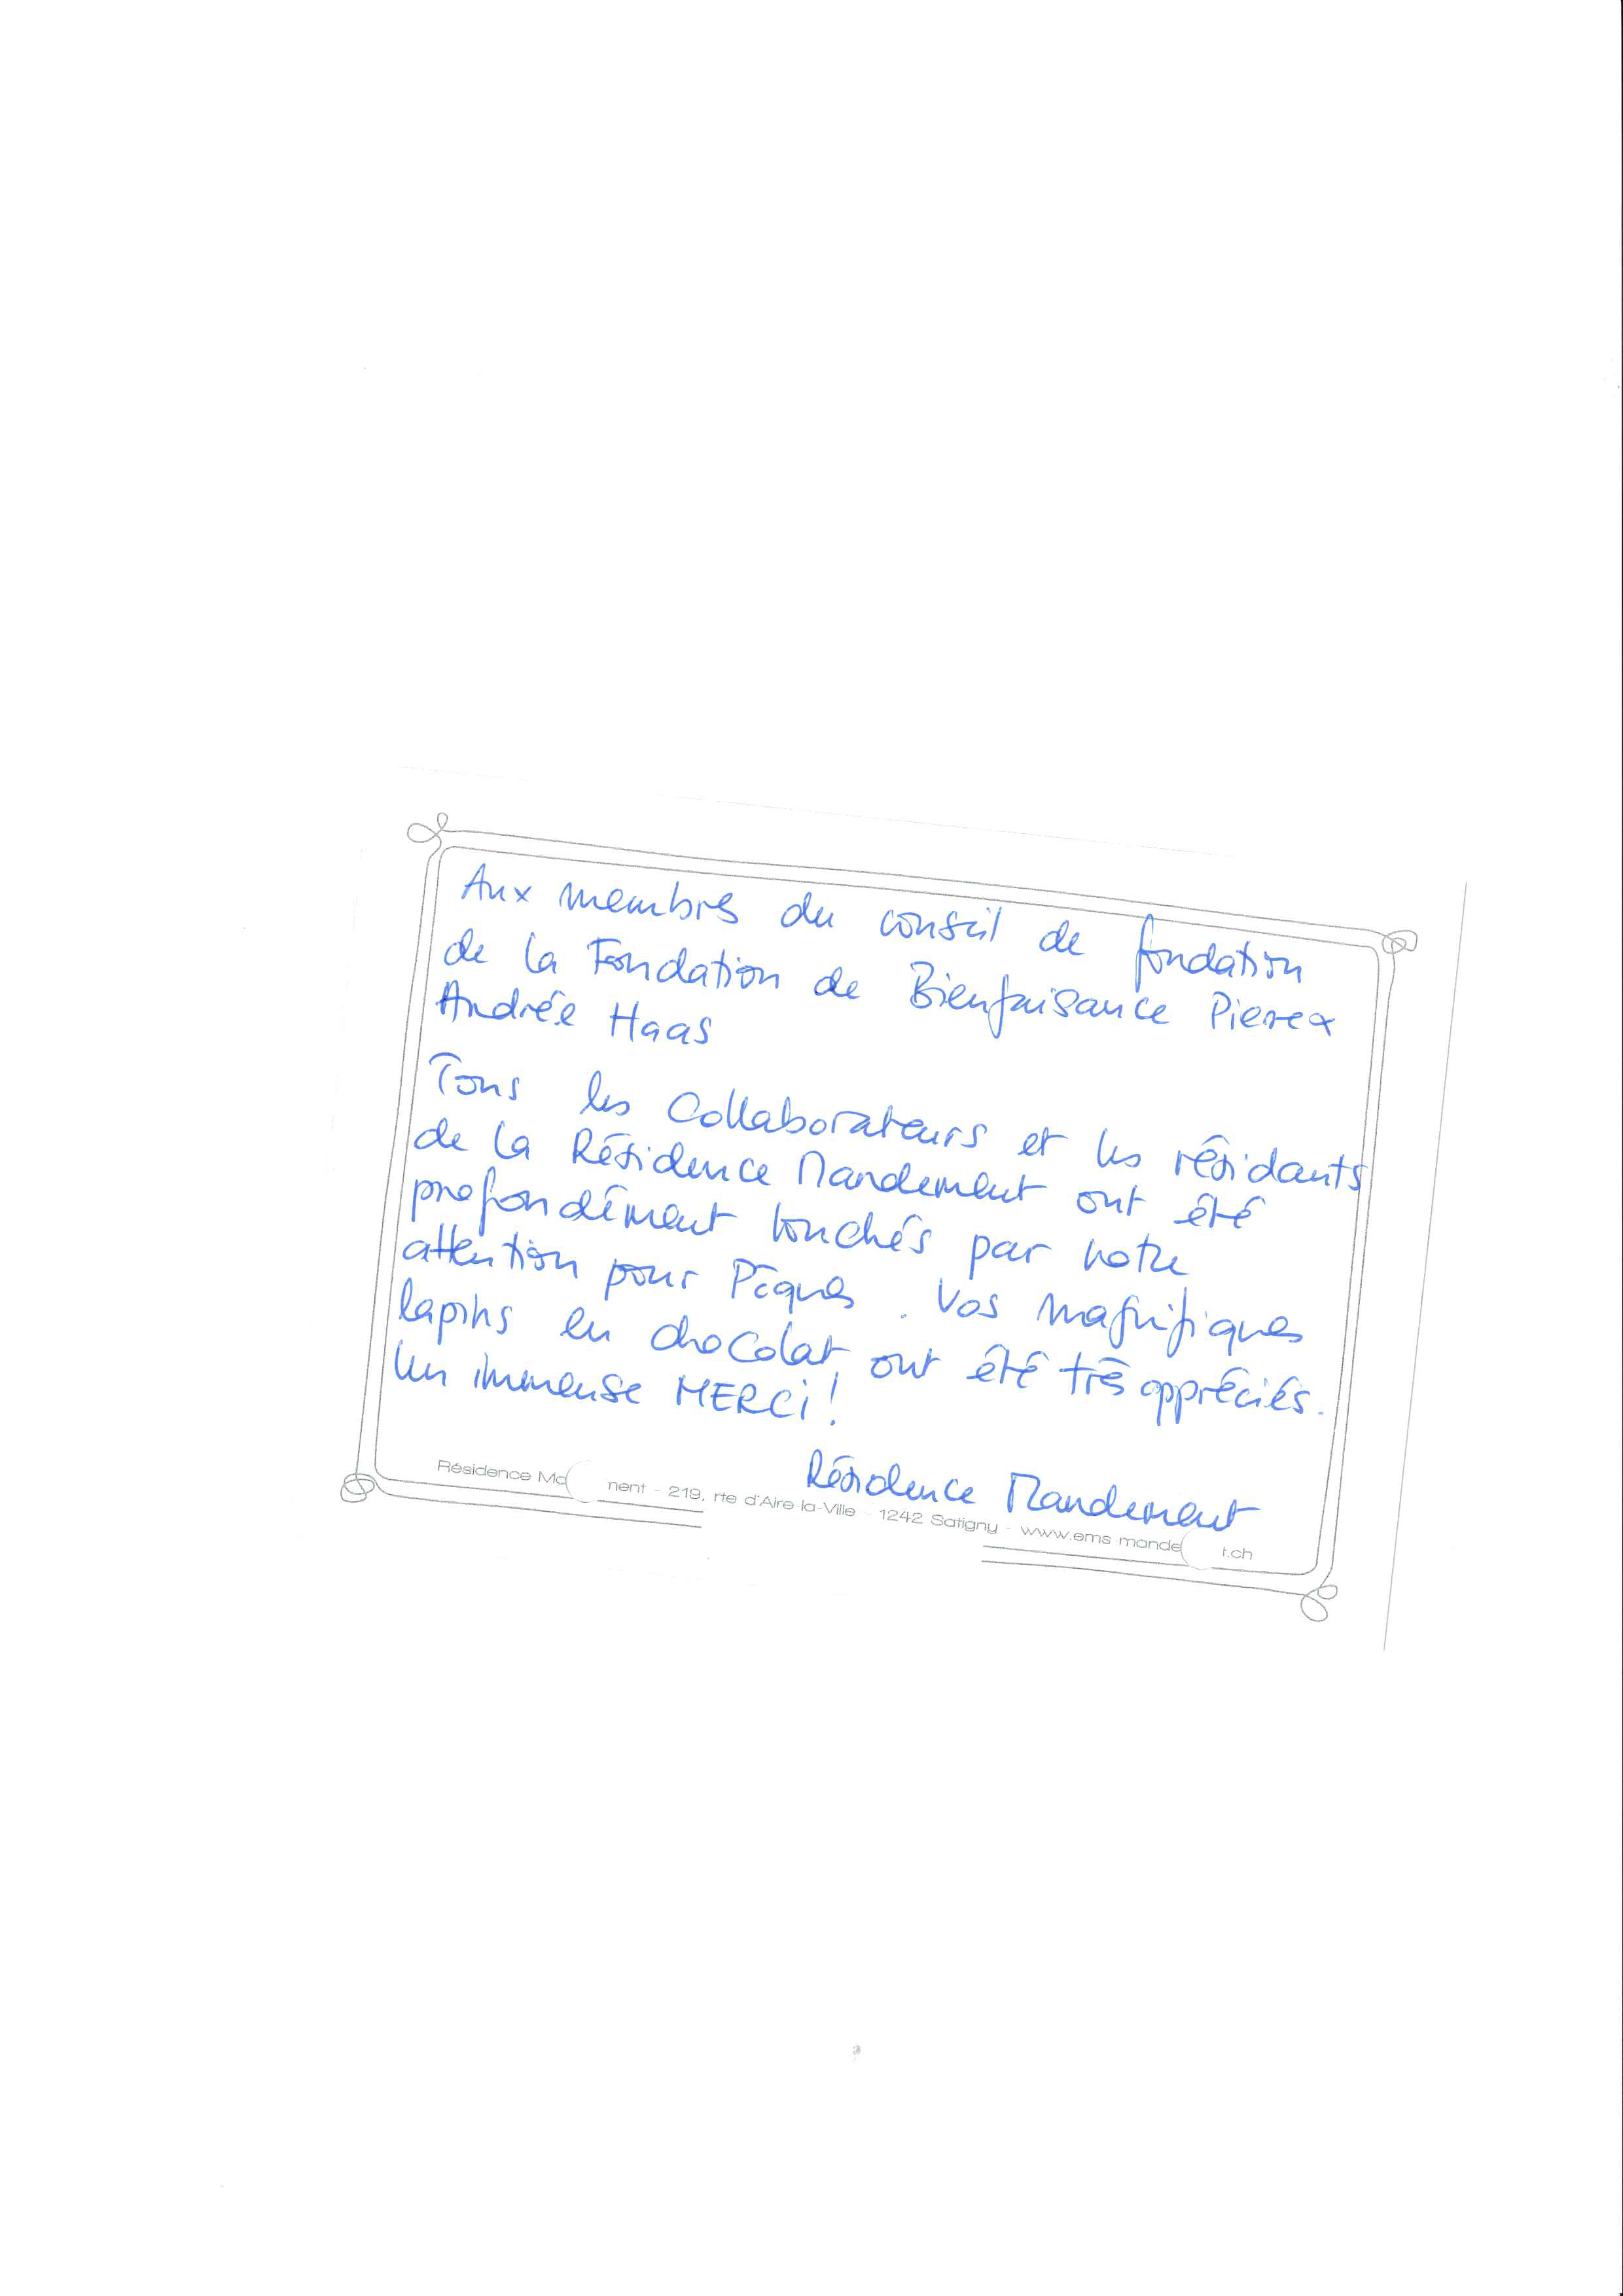 Aux membres du conseil de fondation
de la Fondation de Bienfaisance Pierre &
Andrée Haas
Tous les collaborateurs et les résidants
de la Résidence Mandement ont été
profondément touchés par votre
attention pour Pâques. Vos magnifiques
lapins en chocolat ont été très appréciés.
Un immense MERCi!
Résidence Mandement
Résidence Ma nent - 219, rte d'Aire-la-Ville - 1242 Satigny - www.ems mande t.ch